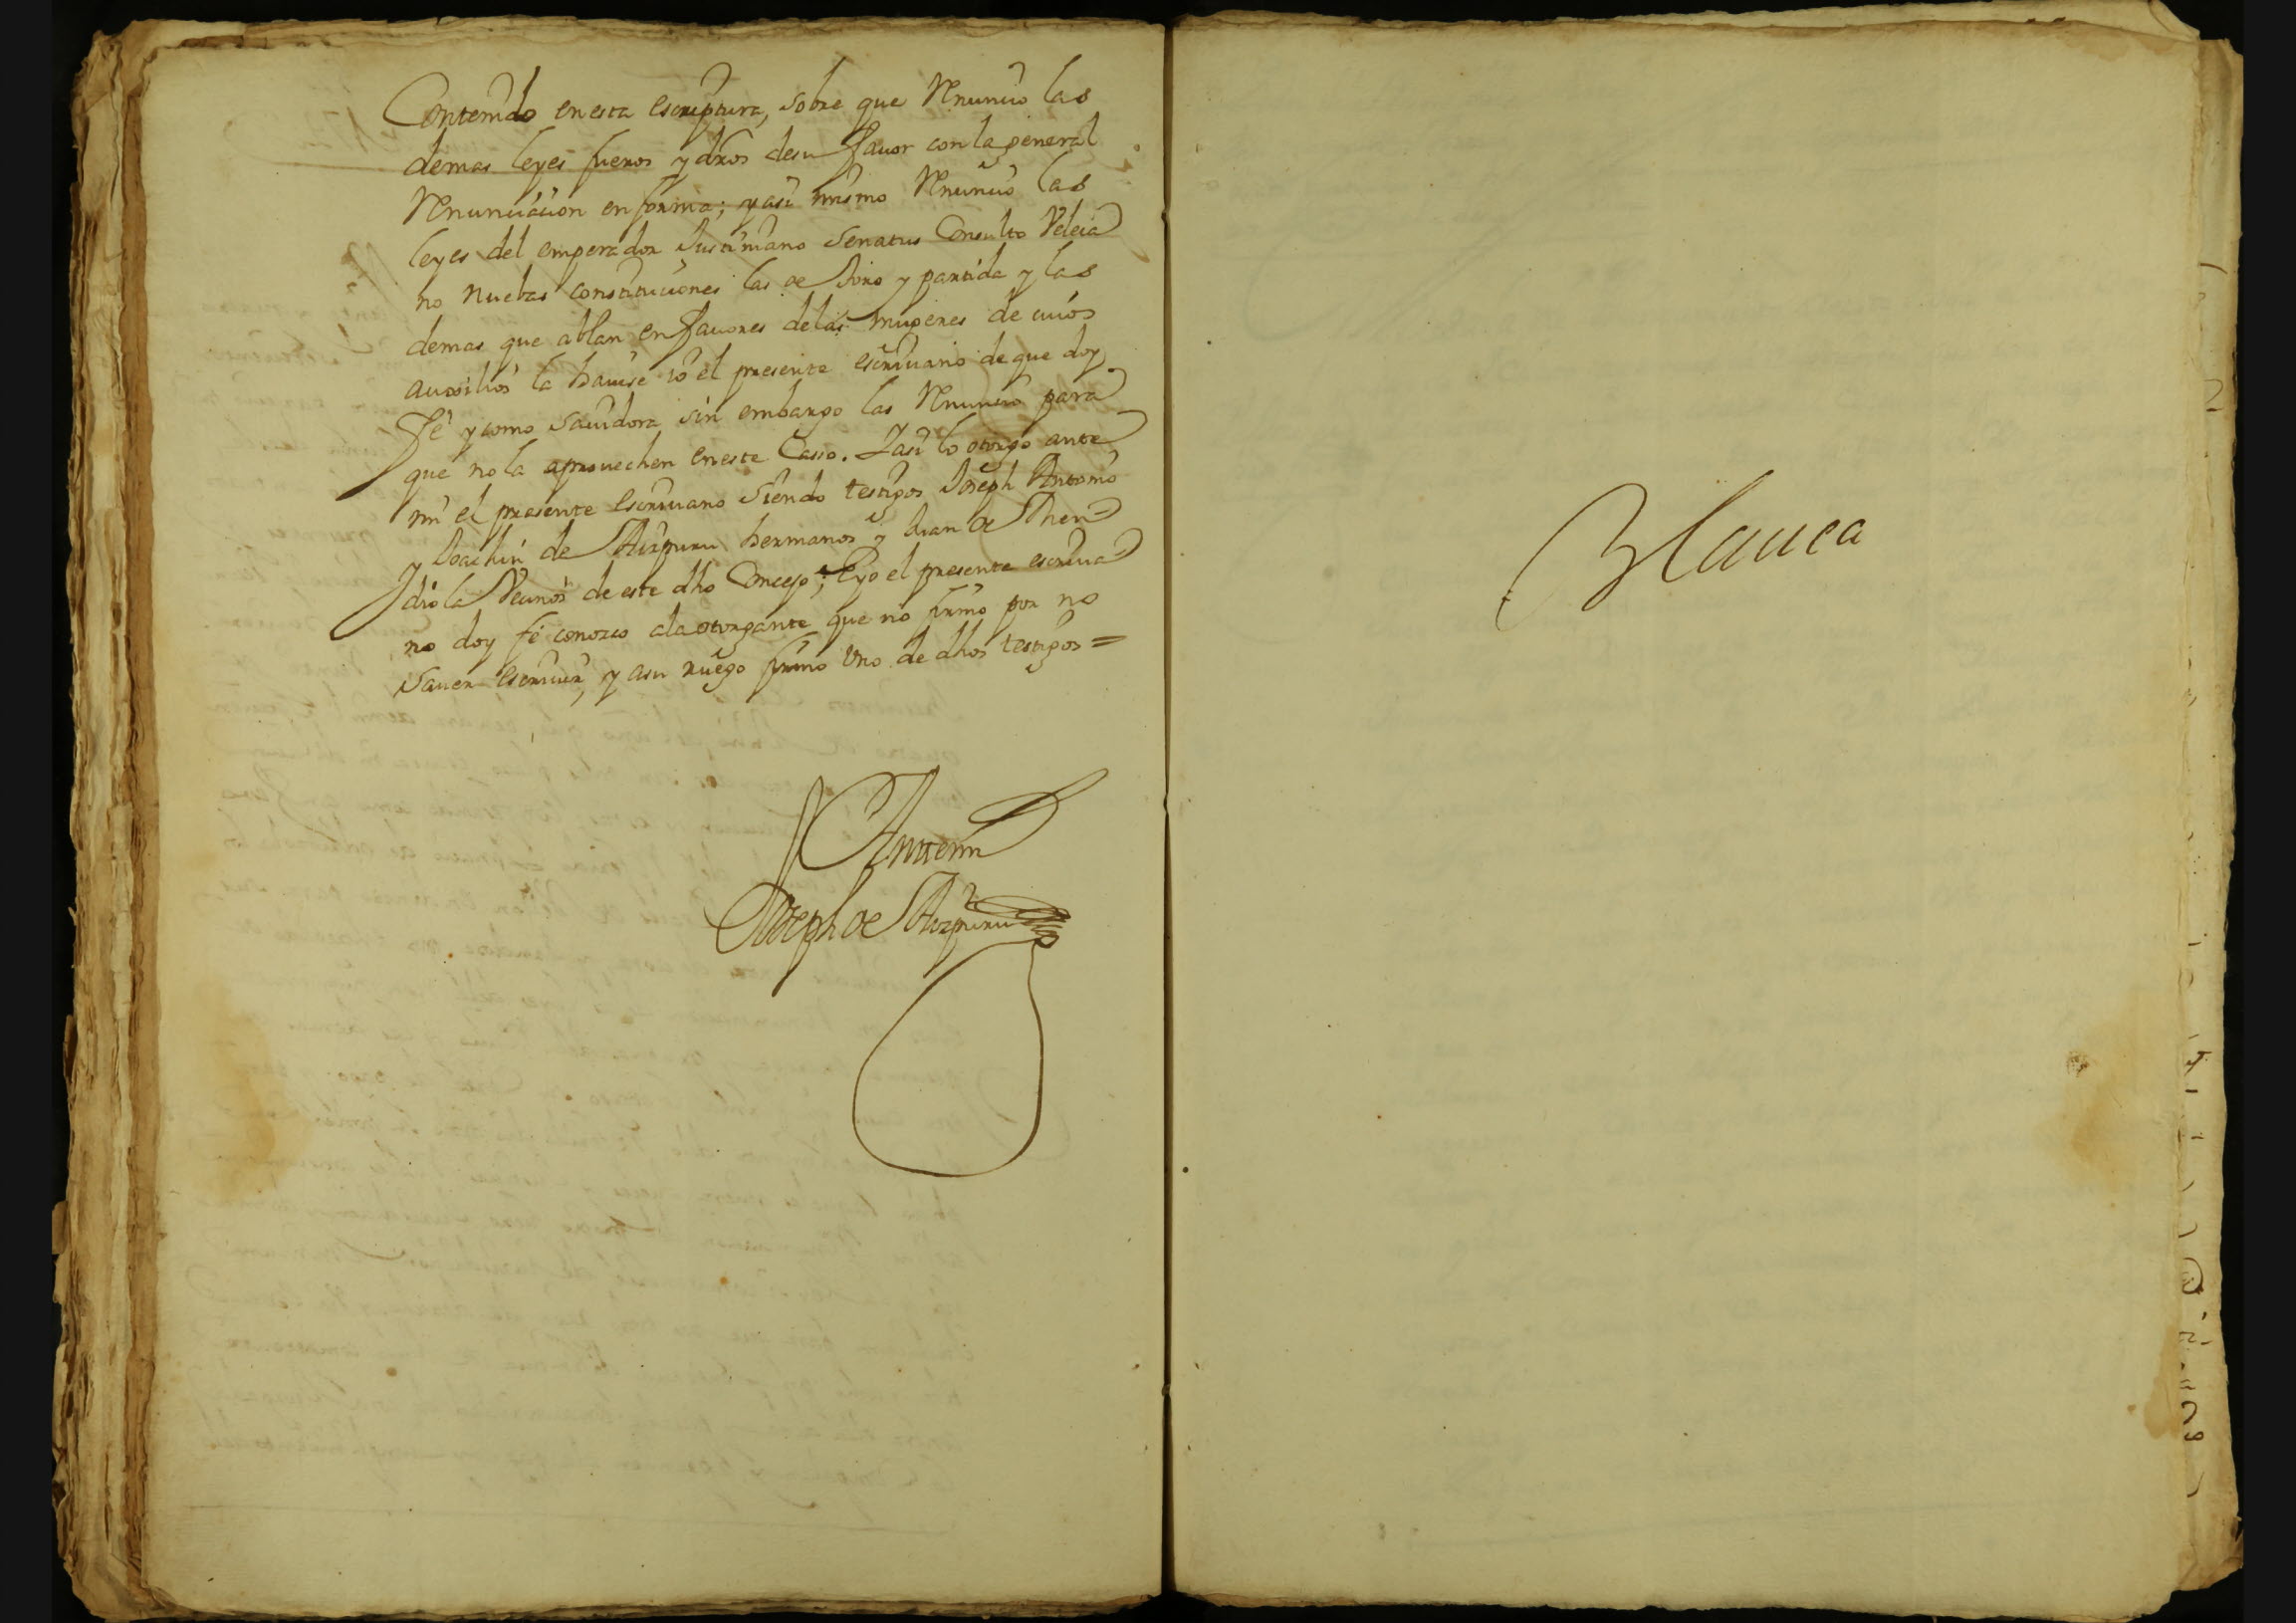 Contenido en esta escriptura, sobre que Renuncio las
demas leyes fueros y dros desu fauor con la general
Renunciacion en forma; y asi mismo Renuncio las
leyes del emperador Justiniano Senatus Consulto Veleia
no nuebas constituciones las de Toro y partida y las
demas que ablan en fauores delas mugeres de cuios
auxilios la hauise io el presente escriuano de que doy
fe y como sauidora sin embargo las Renuncio para
que no la aprouechen en este Casso. Y asi lo otorgo ante
mi el presente escriuano siendo testigos Joseph Antonio
y Joachin de Aizpuru hermanos y Juan de Then
diola Vecinos de este dho Concejo; E yo el presente escriua
no doy fe conozco ala otorgante que no firmo por no
sauer escriuir, y asu ruego firmo Uno de dhos testigos =
Antemi
Joseph de Aizpuru
Blanca